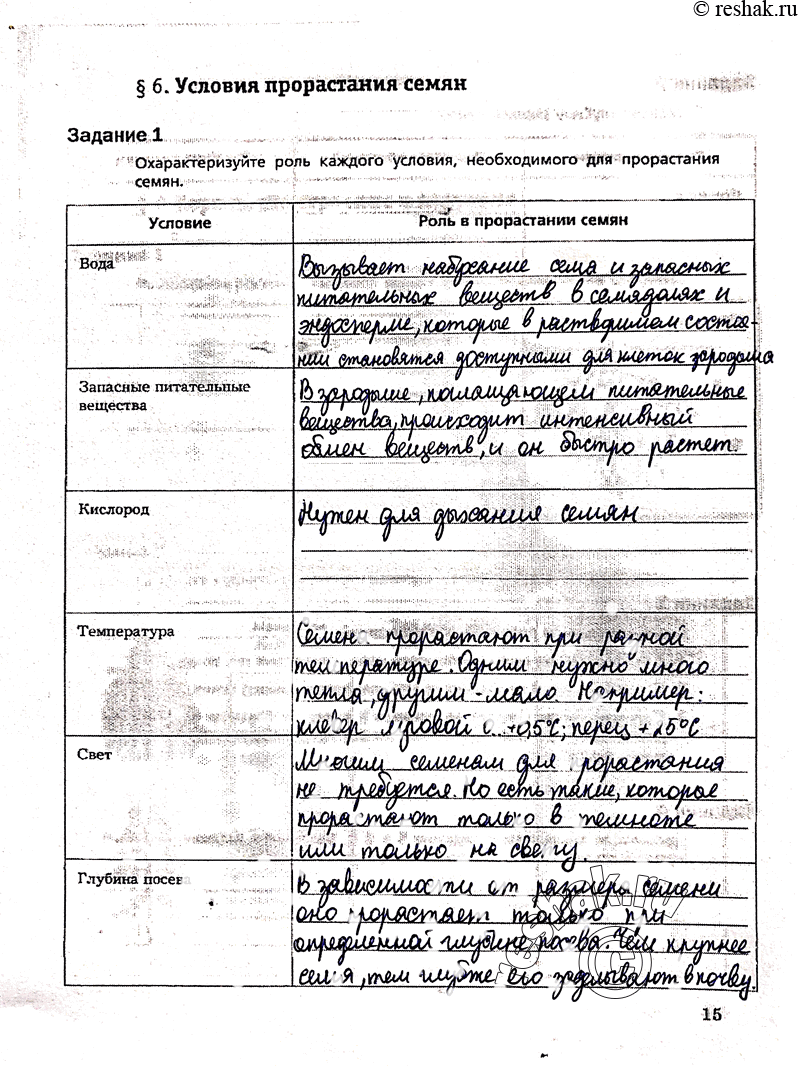 © reshak.ru
§ 6. Условия прорастания семян
Задание 1
Охарактеризуйте роль каждого условия, необходимого для прорастания
семян.
Условие
Роль в прорастании семян
Вода
Вызывает набухание сема и запасных
питательных веществ в семядолях и
эндосперме, которые в растворимом состоя-
нии становятся доступными для клеток зародыша
Запасные питательные
вещества
В зародыше, поглащающем питательные
вещества, происходит интенсивный
обмен веществ, и он быстро растет.
Кислород
Нужен для дыхания семян
Температура
Семен прорастают при разной
температуре. Одним нужно много
тепла, другим - мало Например:
клевер +0,5°С; перец +25°С
Свет
Многим семенам для прорастания
не требуется. Но есть такие, которые
прорастают только в темноте
или только на свету.
Глубина посева
В зависимости от размера семени
оно прорастает только при
определенной глубине посева. Чем крупнее
семя, тем глубже его заделывают в почву.
reshak.ru
©
15